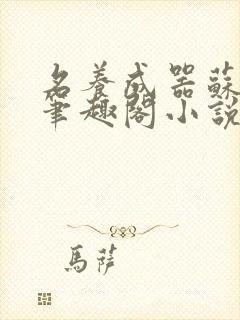 名養成器蘇
筆趣閣小說
馬薩